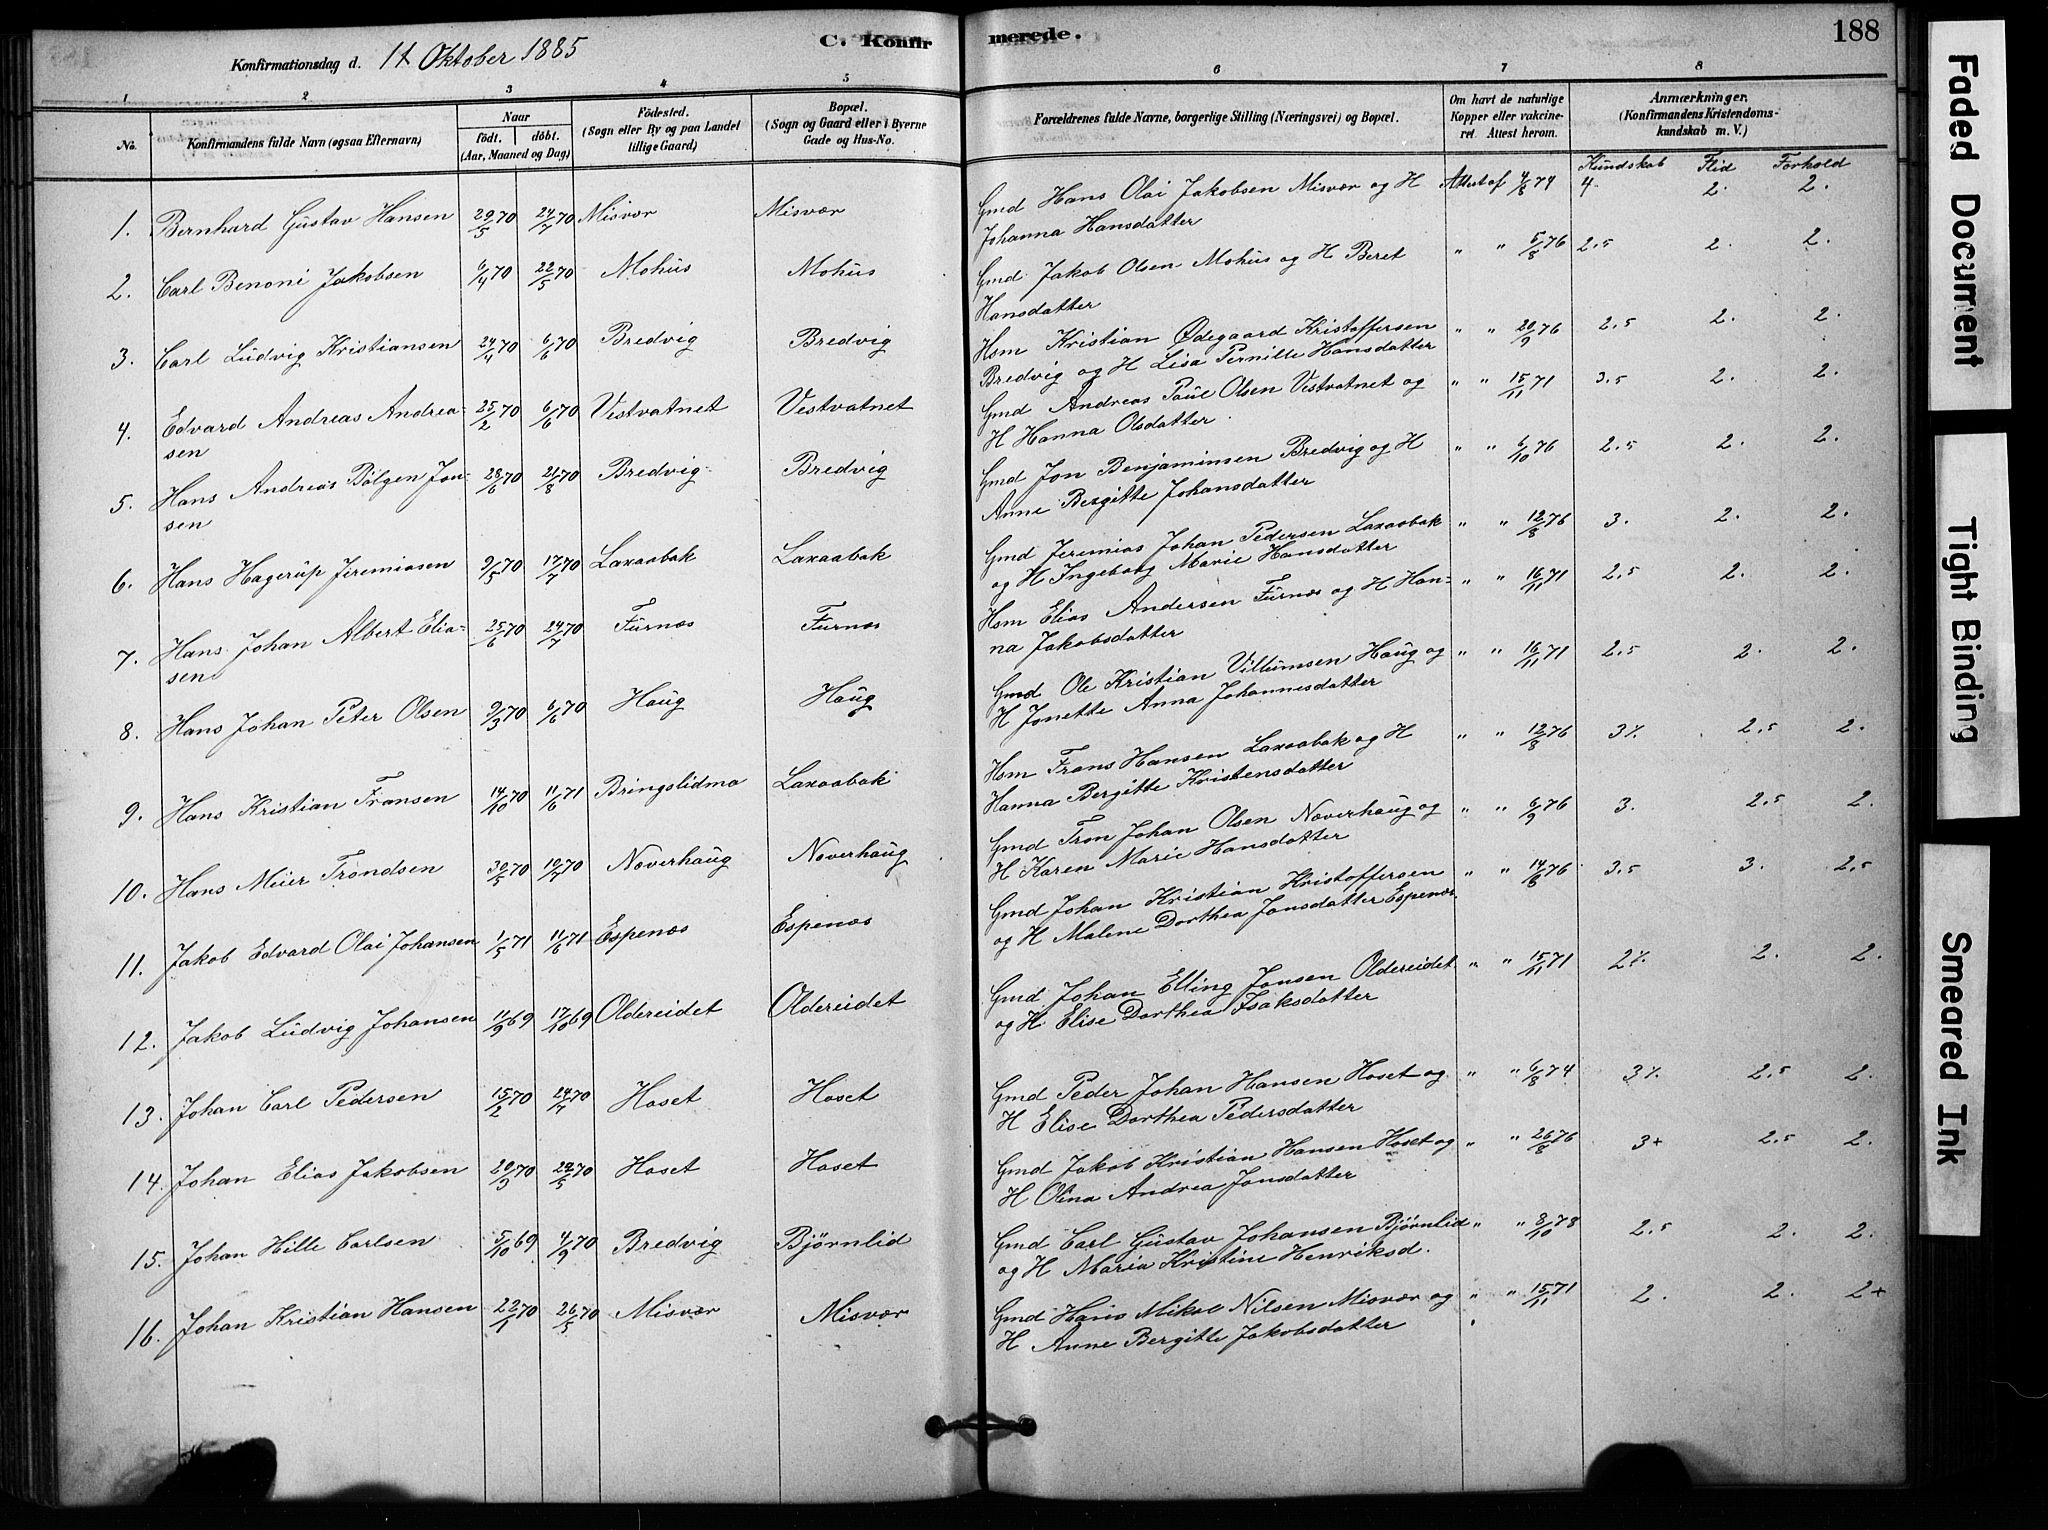 C. Konfirmerede.
188
Konfirmationsdag d. 11 Oktober 1885
1 2 3 4 5 6 7 8
No. Konfirmandens fulde Navn (ogsaa Efternavn) Naar født. døbt. (Aar, Maaned og Dag) Fødested. (Sogn eller By og paa Landet tillige Gaard) Bopæl. (Sogn og Gaard eller i Byerne Gade og Hus-No. Forældrenes fulde Navne, borgerlige Stilling (Næringsvei) og Bopæl. Om havt de naturlige Kopper eller vakcineret. Attest herom. Anmærkninger. (Konfirmandens Kristendomskundskab m. V.)
Kundskab Flid Forhold
1. Bernhard Gustav Hansen 29/5 70 24/7 70 Misvær Misvær Gmd Hans Olai Jakobsen Misvær og H Attest af 4/8 74 4. 2. 2.
Johanna Hansdatter
2. Carl Benoni Jakobsen 6/4 70 22/5 70 Mohus Mohus Gmd Jakob Olsen Mohus og H Beret " " 5/8 76 2.5 2. 2.
Hansdatter
3. Carl Ludvig Kristiansen 24/4 70 6/6 70 Bredvig Bredvig Hsm Kristian Ødegaard Kristoffersen " " 20/9 76 2.5 2. 2.
Bredvig og H Lisa Pernille Hansdatter
4. Edvard Andreas Andrea- 25/2 70 6/6 70 Vestvatnet Vestvatnet Gmd Andreas Paul Olsen Vestvatnet og " " 15/11 71 3.5 2. 2.
sen H Hanna Olsdatter.
5. Hans Andreas Bølgen Jon- 28/6 70 21/8 70 Bredvig Bredvig Gmd Jon Benjaminsen Bredvig og H " " 6/10 76 2.5 2. 2.
sen Anne Bergitte Johansdatter
6. Hans Hagerup Jeremiasen 9/5 70 17/7 70 Laxaabak Laxaabak Gmd Jeremias Johan Pedersen Laxaabak " " 12/8 76 3. 2. 2.
og H Ingeborg Marie Hansdatter
7. Hans Johan Albert Elia- 25/6 70 24/7 70 Furnæs Furnæs Hsm Elias Andersen Furnæs og H Han- " " 16/11 71 2.5 2. 2.
sen na Jakobsdatter
8. Hans Johan Peter Olsen 9/3 70 6/6 70 Haug Haug Gmd Ole Kristian Villumsen Haug og " " 16/11 71 2.5 2. 2.
H Jonette Anna Johannesdatter
9. Hans Kristian Fransen 14/10 70 11/6 71 Bringslidmo Laxaabak Hsm Frans Hansen Laxaabak og H " " 12/8 76 3% 2.5 2.
Hanna Bergitte Kristensdatter
10. Hans Meier Trondsen 30/5 70 10/7 70 Noverhaug Noverhaug Gmd Tron Johan Olsen Noverhaug og " " 6/9 76 3. 2.5 2.
H Karen Marie Hansdatter
11. Jakob Edvard Olai Johansen 1/5 71 11/6 71 Espenæs Espenæs Gmd Johan Kristian Kristoffersen " " 14/8 76 3.5 3. 2.5
og H Malene Dorthea Jonsdatter Espenæs
12. Jakob Ludvig Johansen 11/9 69 17/10 69 Oldereidet Oldereidet Gmd Johan Elling Jonsen Oldereidet " " 15/11 71 2% 2. 2.
og H. Elise Dorthea Isaksdatter
13. Johan Carl Pedersen 15/2 70 24/7 70 Hoset Hoset Gmd Peder Johan Hansen Hoset og " " 6/8 74 3% 2.5 2.
H Elise Dorthea Pedersdatter
14. Johan Elias Jakobsen 20/3 70 22/5 70 Hoset Hoset Gmd Jakob Kristian Hansen Hoset og " " 26/8 76 3+ 2.5 2.
H Olina Andrea Jonsdatter
15. Johan Hille Carlsen 5/10 69 4/9 70 Bredvig Bjørnlid Gmd Carl Gustav Johansen Bjørnlid " " 8/10 78 2.5 2. 2.
og H Maria Kristine Henriksd.
16. Johan Kristian Hansen 22/1 70 26/5 70 Misvær Misvær Gmd Hans Mikal Nilsen Misvær og " " 15/11 71 2. 2. 2+
H Anne Bergitte Jakobsdatter
Faded Document
Tight Binding
Smeared Ink